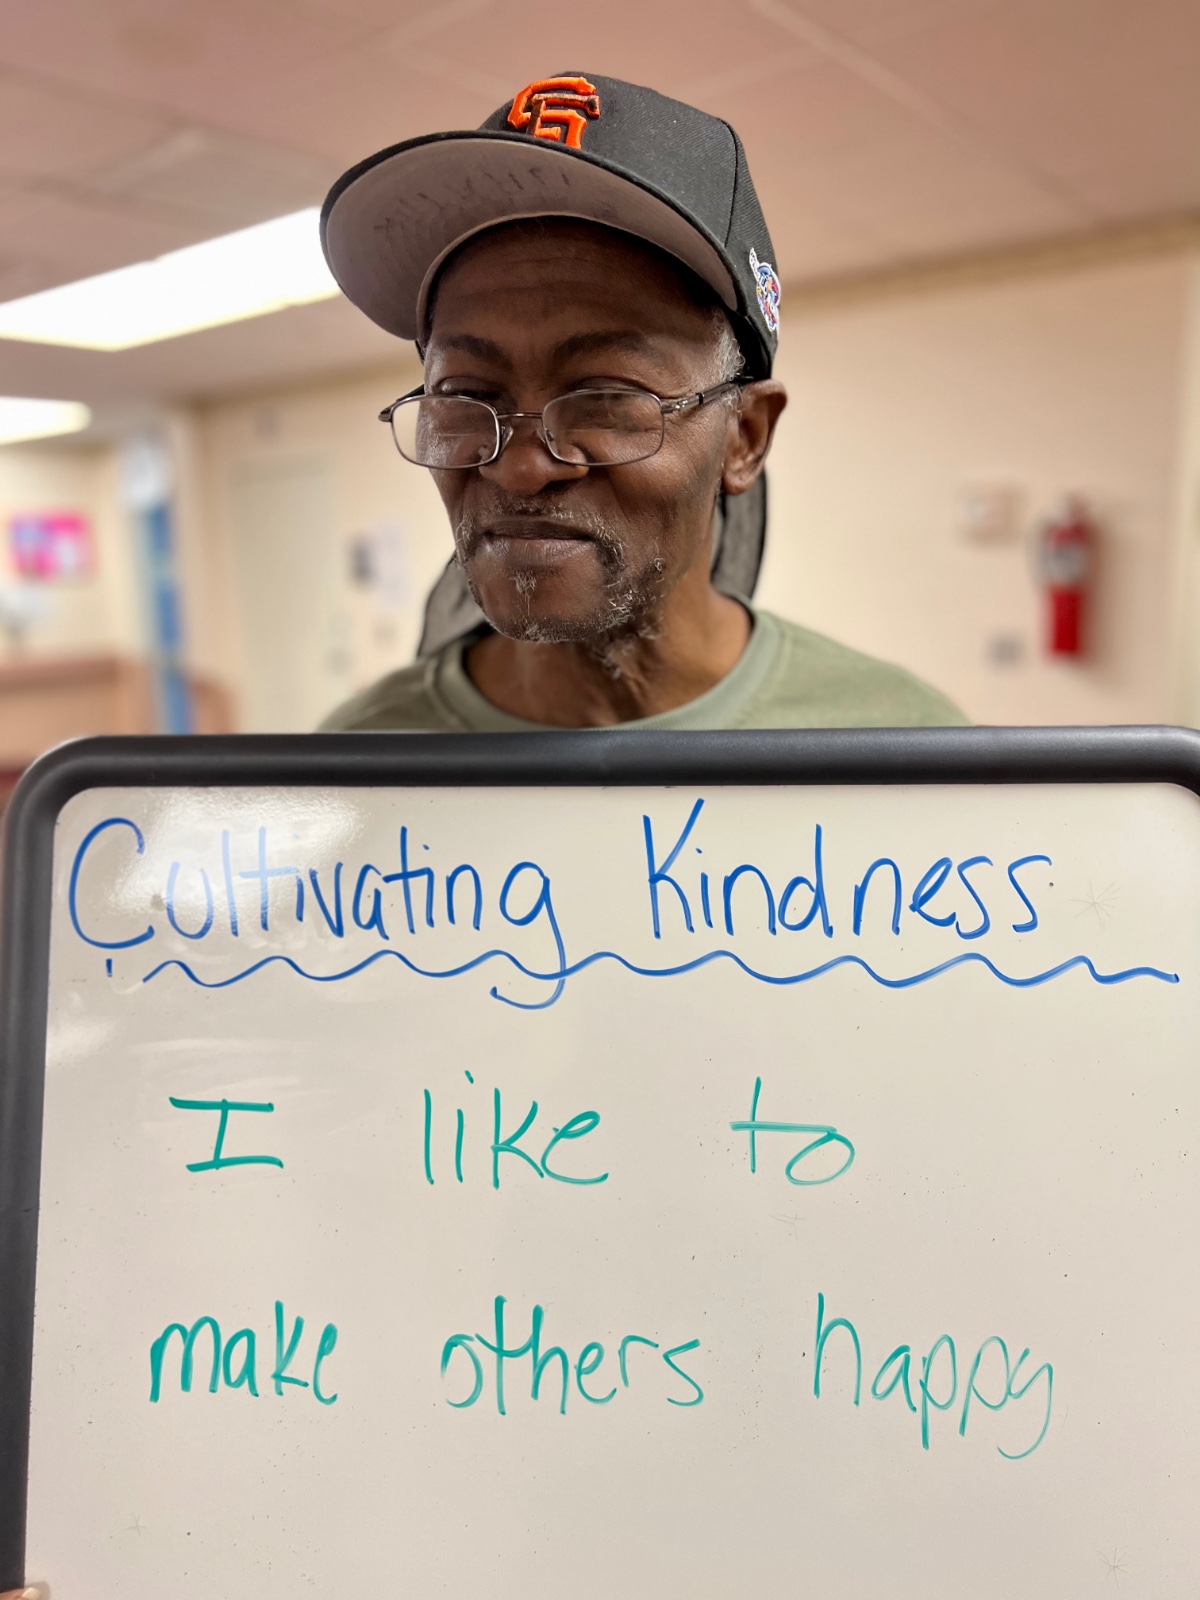 SF
Cultivating Kindness
I like to
make others happy